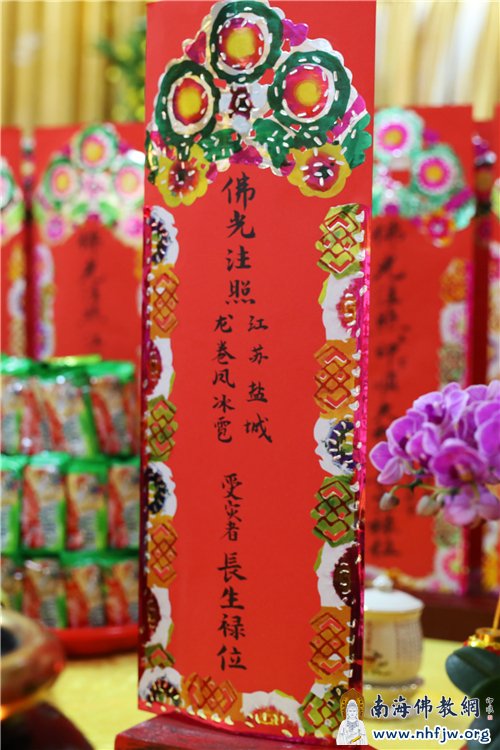 佛光注照
江苏盐城
龙卷风冰雹
受灾者
長生禄位
佛光注照
佛光
禄位
南海佛教網
www.nhfjw.org